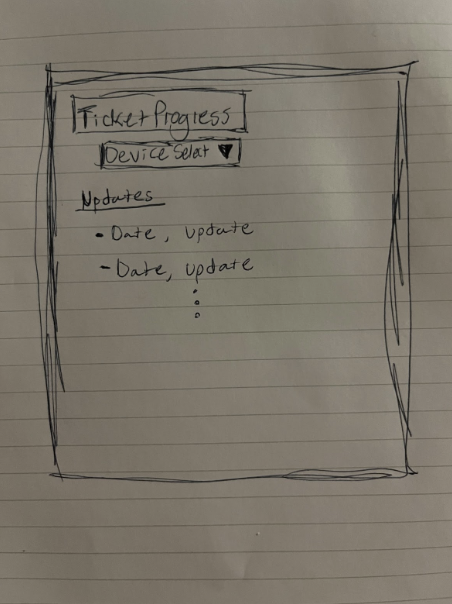 Ticket Progress
Device Select ▼
Updates
- Date, update
- Date, update